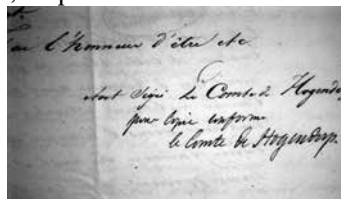 j'ai l'honneur d'être etc
etoit signé Le Comte de Hogendorp
pour copie conforme
le Comte de Hogendorp.